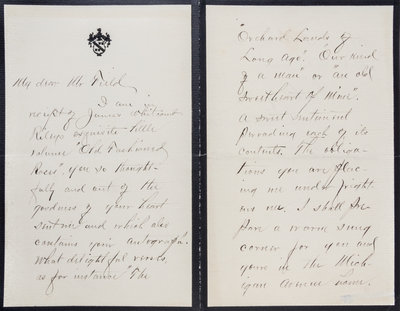 My dear Mr Field
I am in
receipt of James Whitcomb
Riley's exquisite little
volume "Old Fashioned
Roses", you so thought-
fully and out of the
goodness of your heart
sent me and which also
contains your autograph.
What delightful verses
as for instance "The
"Orchard Lands of
Long Ago". "Our kind
of a man" or "an old
Sweetheart of Mine".
A sweet sentiment
pervading each of its
contents. The obliga-
tions you are plac-
ing me under fright-
ens me. I shall pre-
pare a warm snug
corner for you and
yours in the Mich-
igan Avenue home.